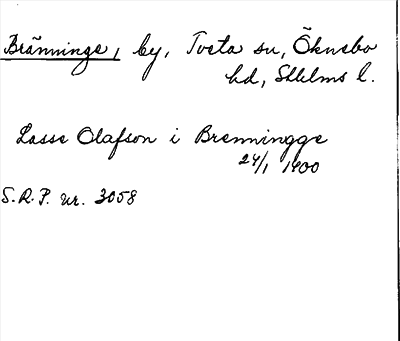 Bränninge, by, Tveta sn, Öknebo
hd, Sthlms l.
Lasse Olafson i Brenningge
24/1 1400
S.R.P. nr. 3058